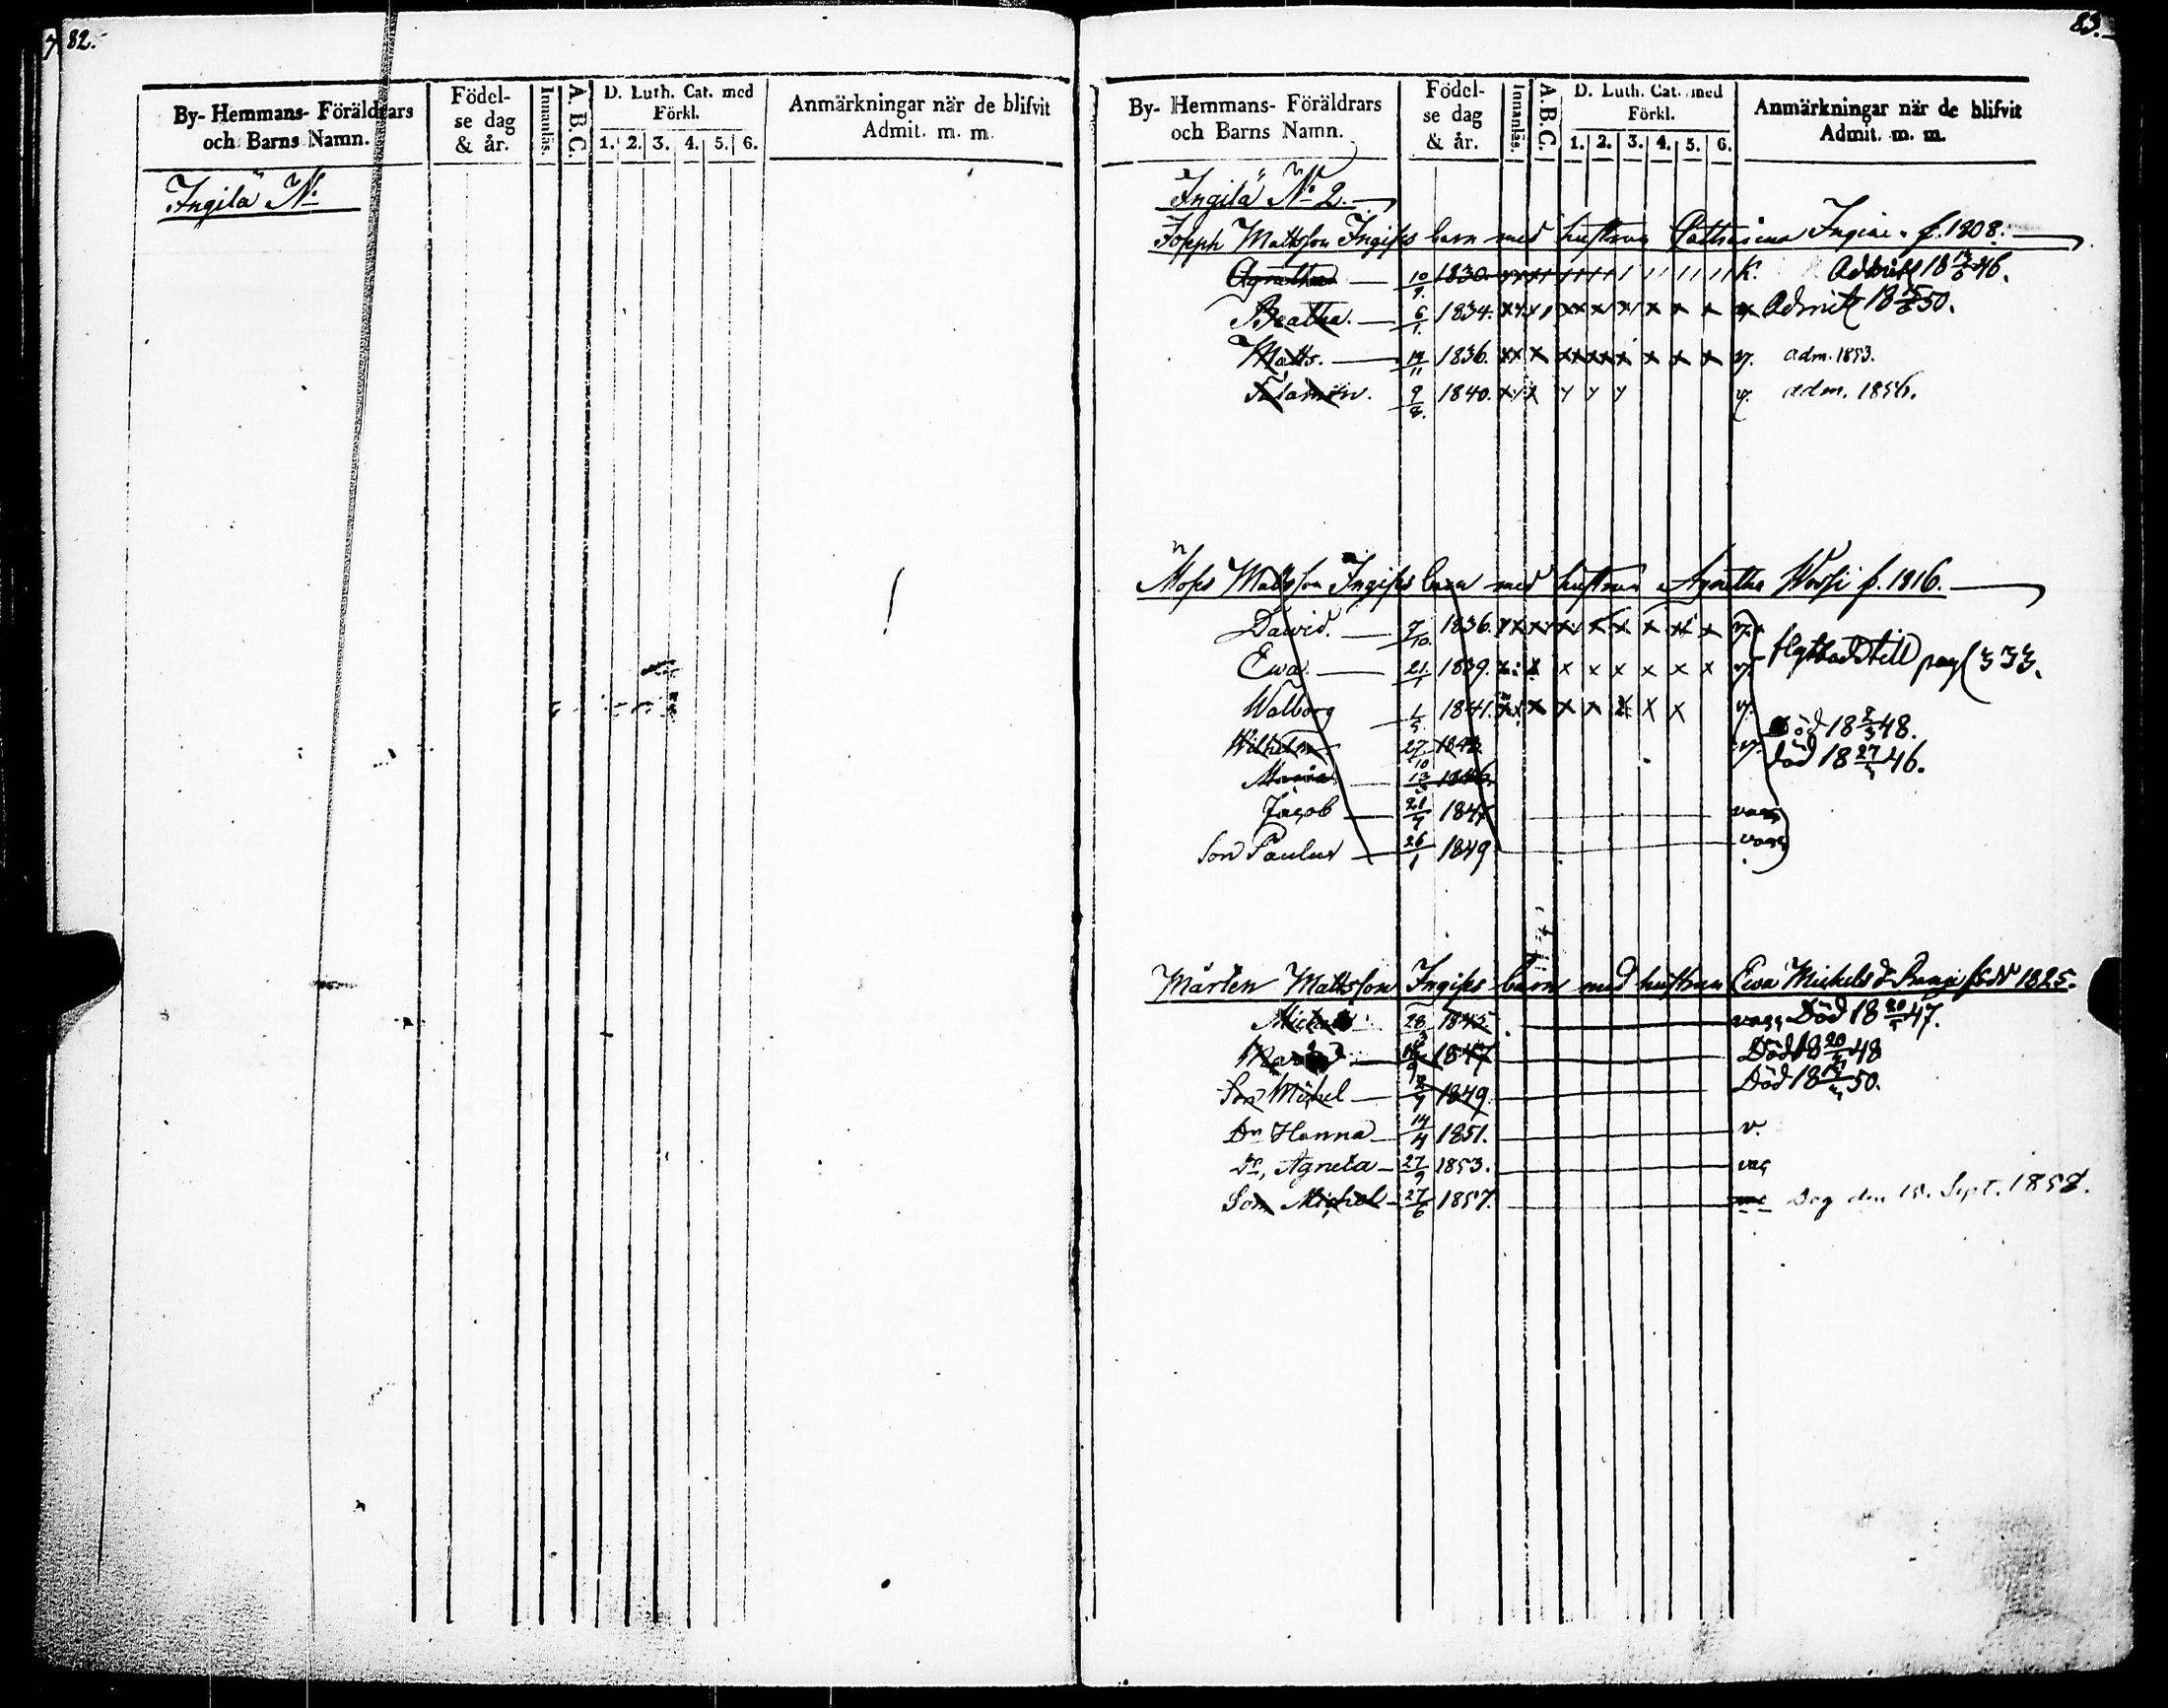 82.
By- Hemmans- Föräldrars
och Barns Namn.
Födel-
se dag
& år.
Innanläs.
A. B. C.
D. Luth. Cat. med
Förkl.
1. 2. 3. 4. 5. 6.
Anmärkningar när de blifvit
Admit. m. m.
Ingilä No
83.
By- Hemmans- Föräldrars
och Barns Namn.
Födel-
se dag
& år.
Innanläs.
A. B. C.
D. Luth. Cat. med
Förkl.
1. 2. 3. 4. 5. 6.
Anmärkningar när de blifvit
Admit. m. m.
Ingilä No 2.
Joseph Mattsson Ingiss barn med hustrun Catharina f. 1808.
Agnetha 10/9. 1830. k. Admit 18 46.
Beatha. 6/1. 1834. Admit 18 50.
Matts. 1836. v. adm. 1853.
9/8. 1840. v. adm. 1856.
Moses Mattsson Ingiss barn med hustrun Agnetha f. 1816.
David. 7/10. 1836. v.
flyttad till pag 333.
Ewa. 21/1 1839. v.
Walborg 1/5. 1841. v.
Wilhelm 27/10 v. död 18 48.
Maria 13 1846. död 18 27 46.
Jacob 21/7 1847 vacc
Son Paulus 26/1 1849 vacc
Mårten Mattsson Ingiss barn med hustrun Ewa Michelsd född 1825.
28 1845. vacc Död 18 20 47.
1847 Död 18 20 48
Son Michel 1849. Död 18 50.
Dr Hanna 14/4 1851. v.
Dr, Agneta 27/9 1853. vac
Son Michel 27/6 1857. Dog den 15. Sept. 1858.